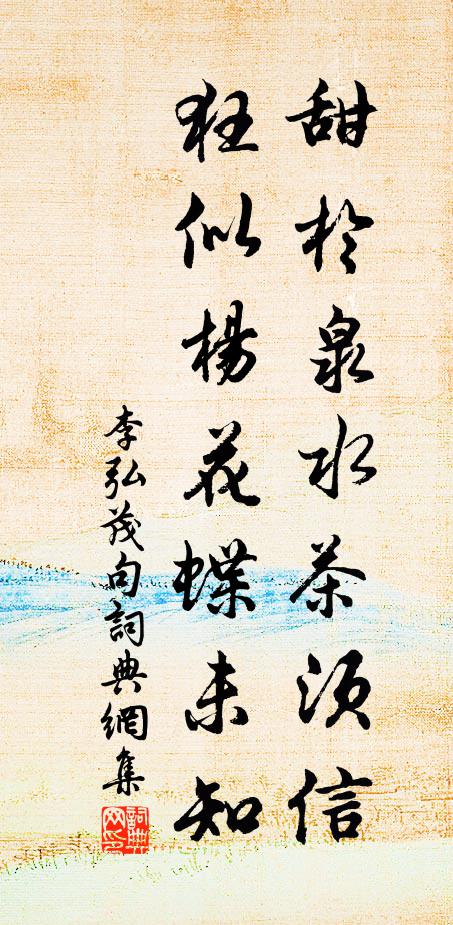 甜於泉水茶須信
狂似楊花蝶未知
李弘茂句詞典網集
詞典網印